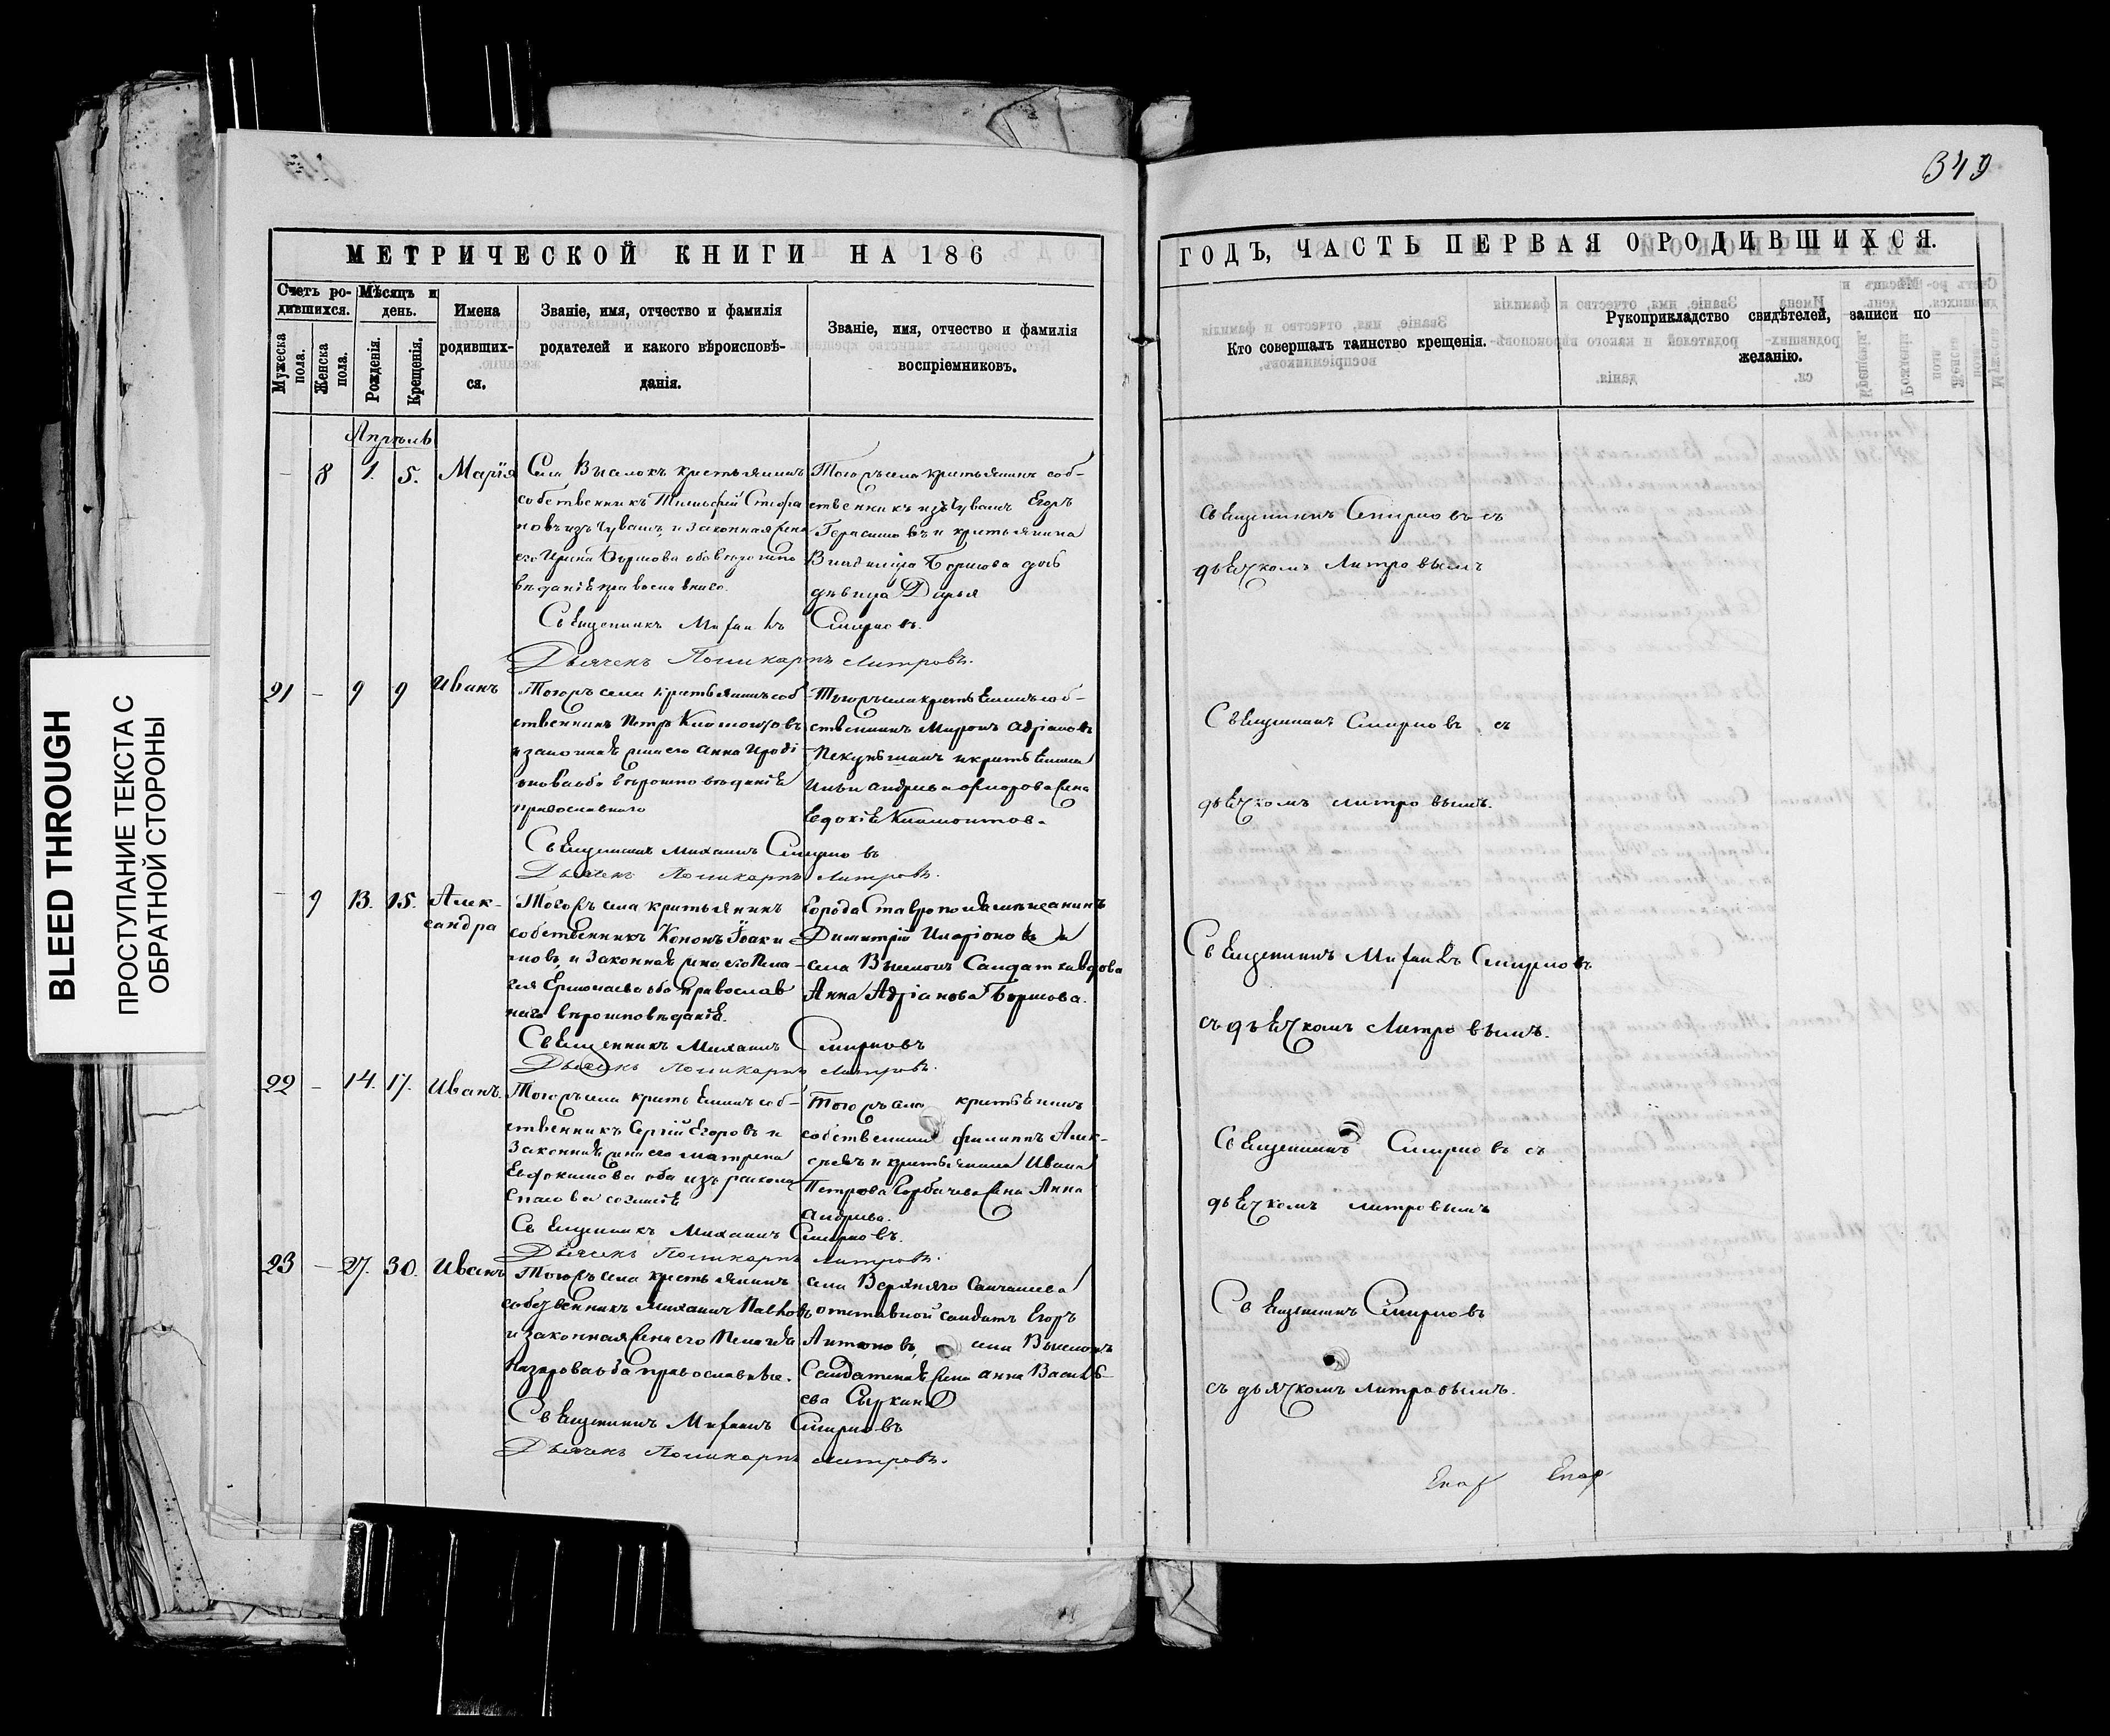 349
МЕТРИЧЕСКОЙ КНИГИ НА 186
ГОДЪ, ЧАСТЬ ПЕРВАЯ О РОДИВШИХСЯ.
Счетъ ро-
дившихся.
Мужеска
пола.
Женска
пола.
Мѣсяцъ и
день.
Рожденія.
Крещенія.
Имена
родивших-
ся.
Званіе, имя, отчество и фамилія
родителей и какого вѣроисповѣ-
данія.
Званіе, имя, отчество и фамилія
воспріемниковъ.
Кто совершалъ таинство крещенія.
Рукоприкладство свидѣтелей, записи по
желанію.
Апрѣль
8 1. 5. Марія
Села Выселокъ крестьянинъ
собственникъ Тимофей Стефа
новъ изъ Чувашъ, и законная жена
его Ирина
православнаго.
Тогожъ села крестьянинъ соб-
ственникъ изъ Чувашъ Егоръ
Герасимовъ и крестьянина
дочь
дѣвица Дарья
Священникъ Михаилъ Смирновъ.
Дьячекъ Поликарпъ Митровъ.
Священникъ Смирновъ съ
дьячкомъ Митровымъ
21 – 9 9 Иванъ
Тогожъ села крестьянинъ соб
ственникъ Петръ
и законная жена его Анна
оба вѣроисповѣданія
православнаго
Тогожъ села крестьянинъ соб-
ственникъ Миронъ Адріановъ
и крестьянина
Андреева жена
Евдокія
Священникъ Михаилъ Смирновъ
Дьячекъ Поликарпъ Митровъ.
Священникъ Смирновъ съ
дьячкомъ Митровымъ.
– 9 13. 15. Алек-
сандра
Тогожъ села крестьянинъ
собственникъ Кононъ Іоаки-
мовъ и законная жена его Пела-
гея Ермолаева оба православ
наго вѣроисповѣданія.
города Ставрополя мещанинъ
Димитрій Иларіоновъ и
села Выселокъ Солдатка вдова
Анна Адріанова
Священникъ Михаилъ Смирновъ
Дьячекъ Поликарпъ Митровъ.
Священникъ Михаилъ Смирновъ
съ дьячкомъ Митровымъ.
22 – 14. 17. Иванъ.
Тогожъ села крестьянинъ соб-
ственникъ Сергій Егоровъ и
законная жена его Матрена
Евдокимова оба изъ раскола
Спасова согласія
Тогожъ села крестьянинъ
собственникъ Филиппъ Алек-
сѣевъ и крестьянина Ивана
Петрова Горбачева жена Анна
Андреева.
Священникъ Михаилъ Смирновъ.
Дьячекъ Поликарпъ Митровъ.
Священникъ Смирновъ съ
дьячкомъ Митровымъ
23 – 27. 30. Иванъ
Тогожъ села крестьянинъ
собственникъ Михаилъ Павловъ
и законная жена его Пелагея
Назарова оба православные.
села Верхняго Санчелеева
отставной солдатъ Егоръ
Антоновъ, села Выселокъ
Солдатская жена Анна Василь-
ева
Священникъ Михаилъ Смирновъ
Дьячекъ Поликарпъ Митровъ.
Священникъ Смирновъ
съ дьячкомъ Митровымъ.
BLEED THROUGH
ПРОСТУПАНИЕ ТЕКСТА С
ОБРАТНОЙ СТОРОНЫ